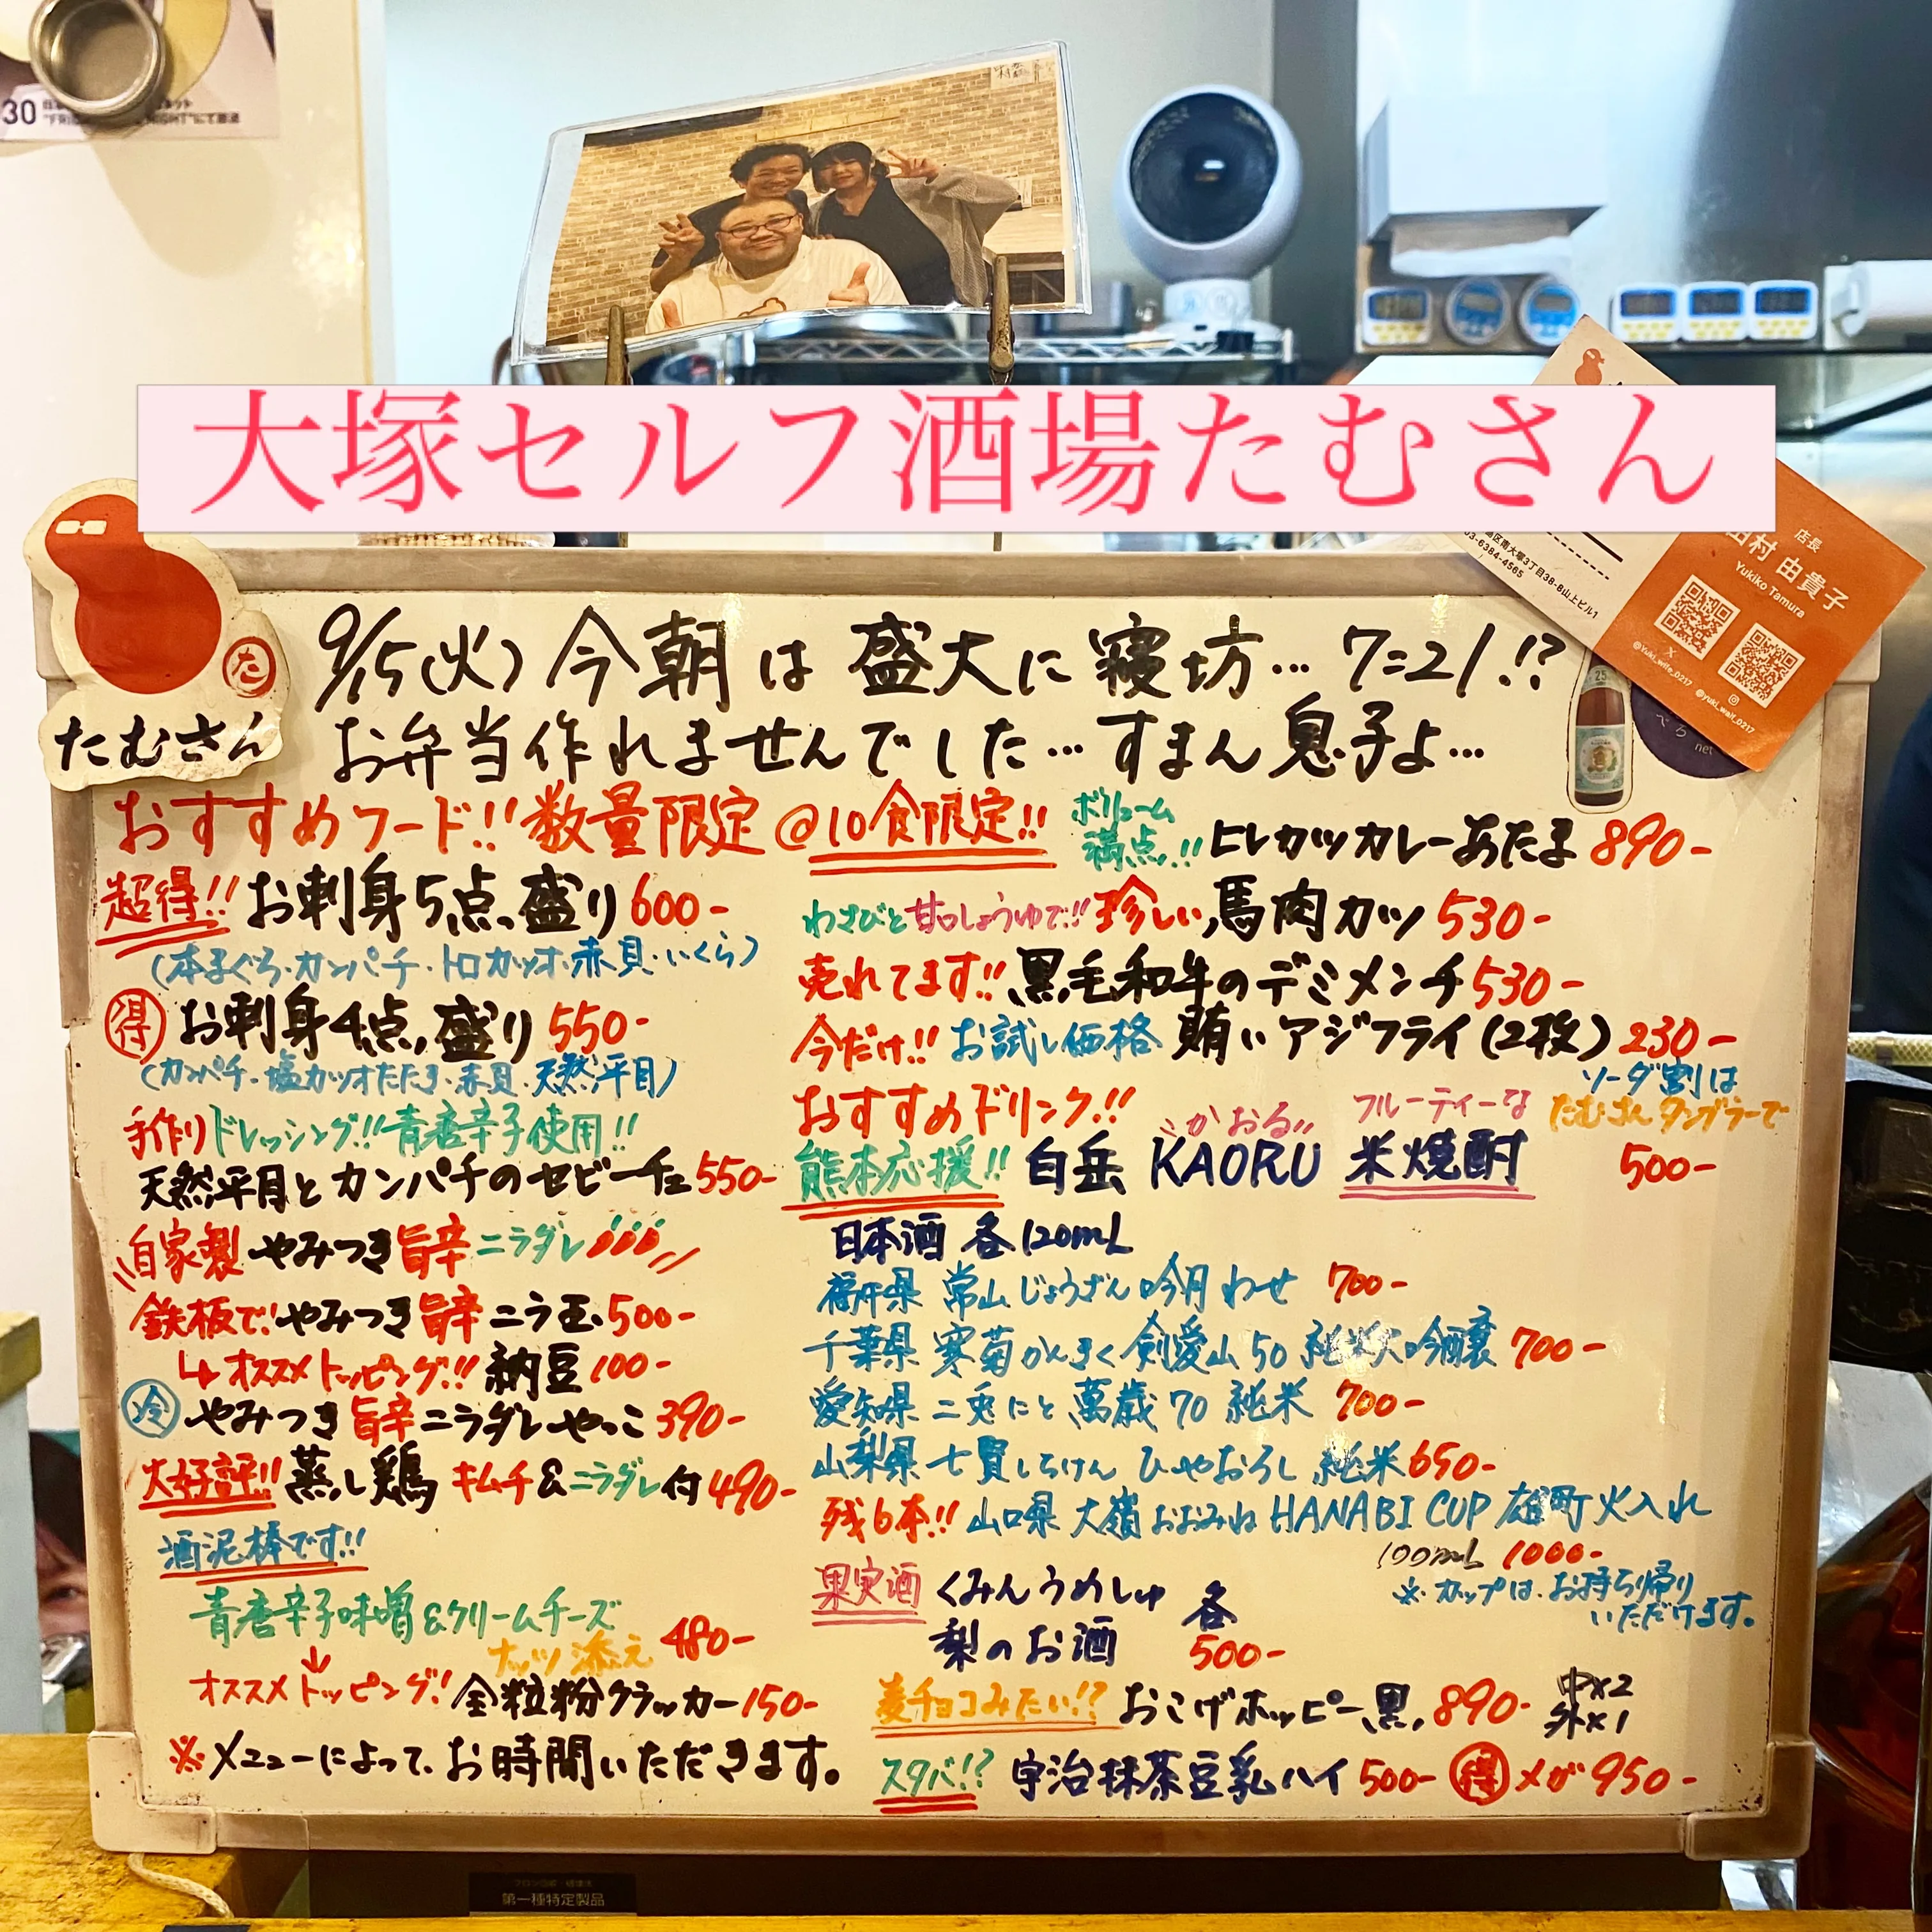 大塚セルフ酒場たむさん
店長
田村 由貴子
Yukiko Tamura
03-6384-4565
X
@Yuki_wife_0217
@yuki_wait_0217
た
たむさん
9/15(火) 今朝は盛大に寝坊…7=21!?
お弁当作れませんでした…すまん息子よ…
おすすめフード!! 数量限定@10食限定!!
超得!! お刺身5点盛り 600-
(本まぐろ・カンパチ・トロカツオ・赤貝・いくら)
得 お刺身4点盛り 550-
(カンパチ・塩カツオたたき・赤貝・天然平目)
手作りドレッシング!! 青唐辛子使用!!
天然平目とカンパチのセビーチェ 550-
自家製 やみつき旨辛ニラダレ
鉄板で! やみつき旨辛ニラ玉 500-
↳オススメトッピング!! 納豆 100-
冷 やみつき旨辛ニラダレやっこ 390-
大好評!! 蒸し鶏 キムチ&ニラダレ付 490-
酒泥棒です!!
青唐辛子味噌&クリームチーズ
ナッツ添え 480-
オススメトッピング! 全粒粉クラッカー 150-
※メニューによって、お時間いただきます。
ボリューム
満点!! ヒレカツカレーあたま 890-
わさびと甘口しょうゆで!! 珍しい馬肉カツ 530-
売れてます!! 黒毛和牛のデミメンチ 530-
今だけ!! お試し価格 賄いアジフライ(2枚) 230-
おすすめドリンク!!
ソーダ割は
たむさんタンブラーで
かおる フルーティーな
熊本応援!! 白岳 KAORU 米焼酎 500-
日本酒 各120mL
福井県 常山 じょうざん 吟月 わせ 700-
千葉県 寒菊 かんきく 剣愛山 50 純米大吟醸 700-
愛知県 二兎 にと 萬歳 70 純米 700-
山梨県 七賢 しちけん ひやおろし 純米 650-
残6本!! 山口県 大嶺 おおみね HANABI CUP 雄町 火入れ
100mL 1000-
※カップは、お持ち帰り
いただけます。
果実酒 くみんうめしゅ
梨のお酒
各
500-
麦チョコみたい!? おこげホッピー黒 890- 中×2
外×1
スタバ!? 宇治抹茶豆乳ハイ 500- 得 メガ 950-
第一種特定製品